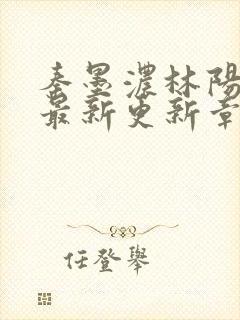 秦墨濃林陽
最新更新章
任登舉